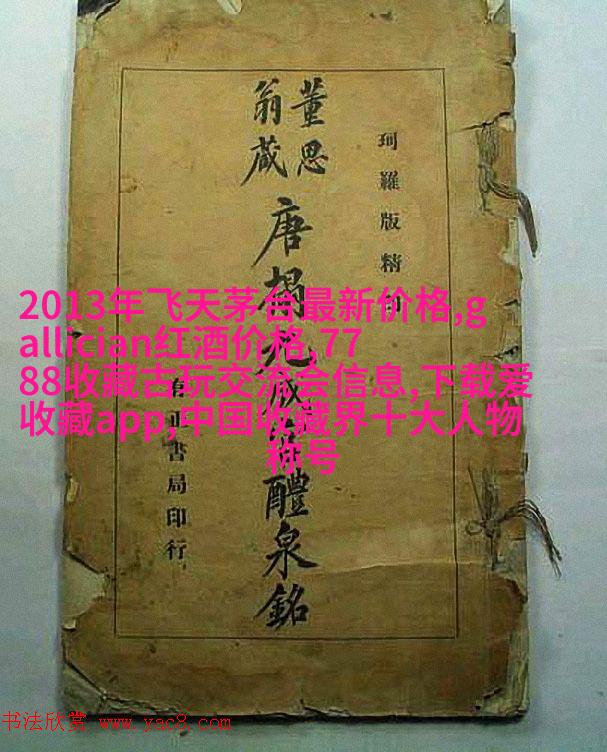 珂羅版精印
董思
翁藏
唐搨九成宮醴泉銘
有正書局印行
2013年飞天茅台最新价格,g
allician红酒价格,77
88收藏古玩交流会信息,下载爱
收藏app,中国收藏界十大人物
称号
书法欣赏 www.yac8.com